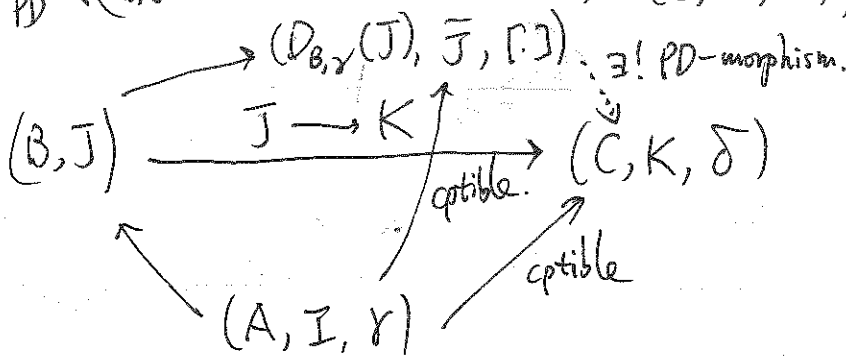 PD
(D_{B,γ}(J), J̄, [·]) ∃! PD-morphism.
J → K
(B, J) (C, K, δ)
cptible.
cptible
(A, I, γ)